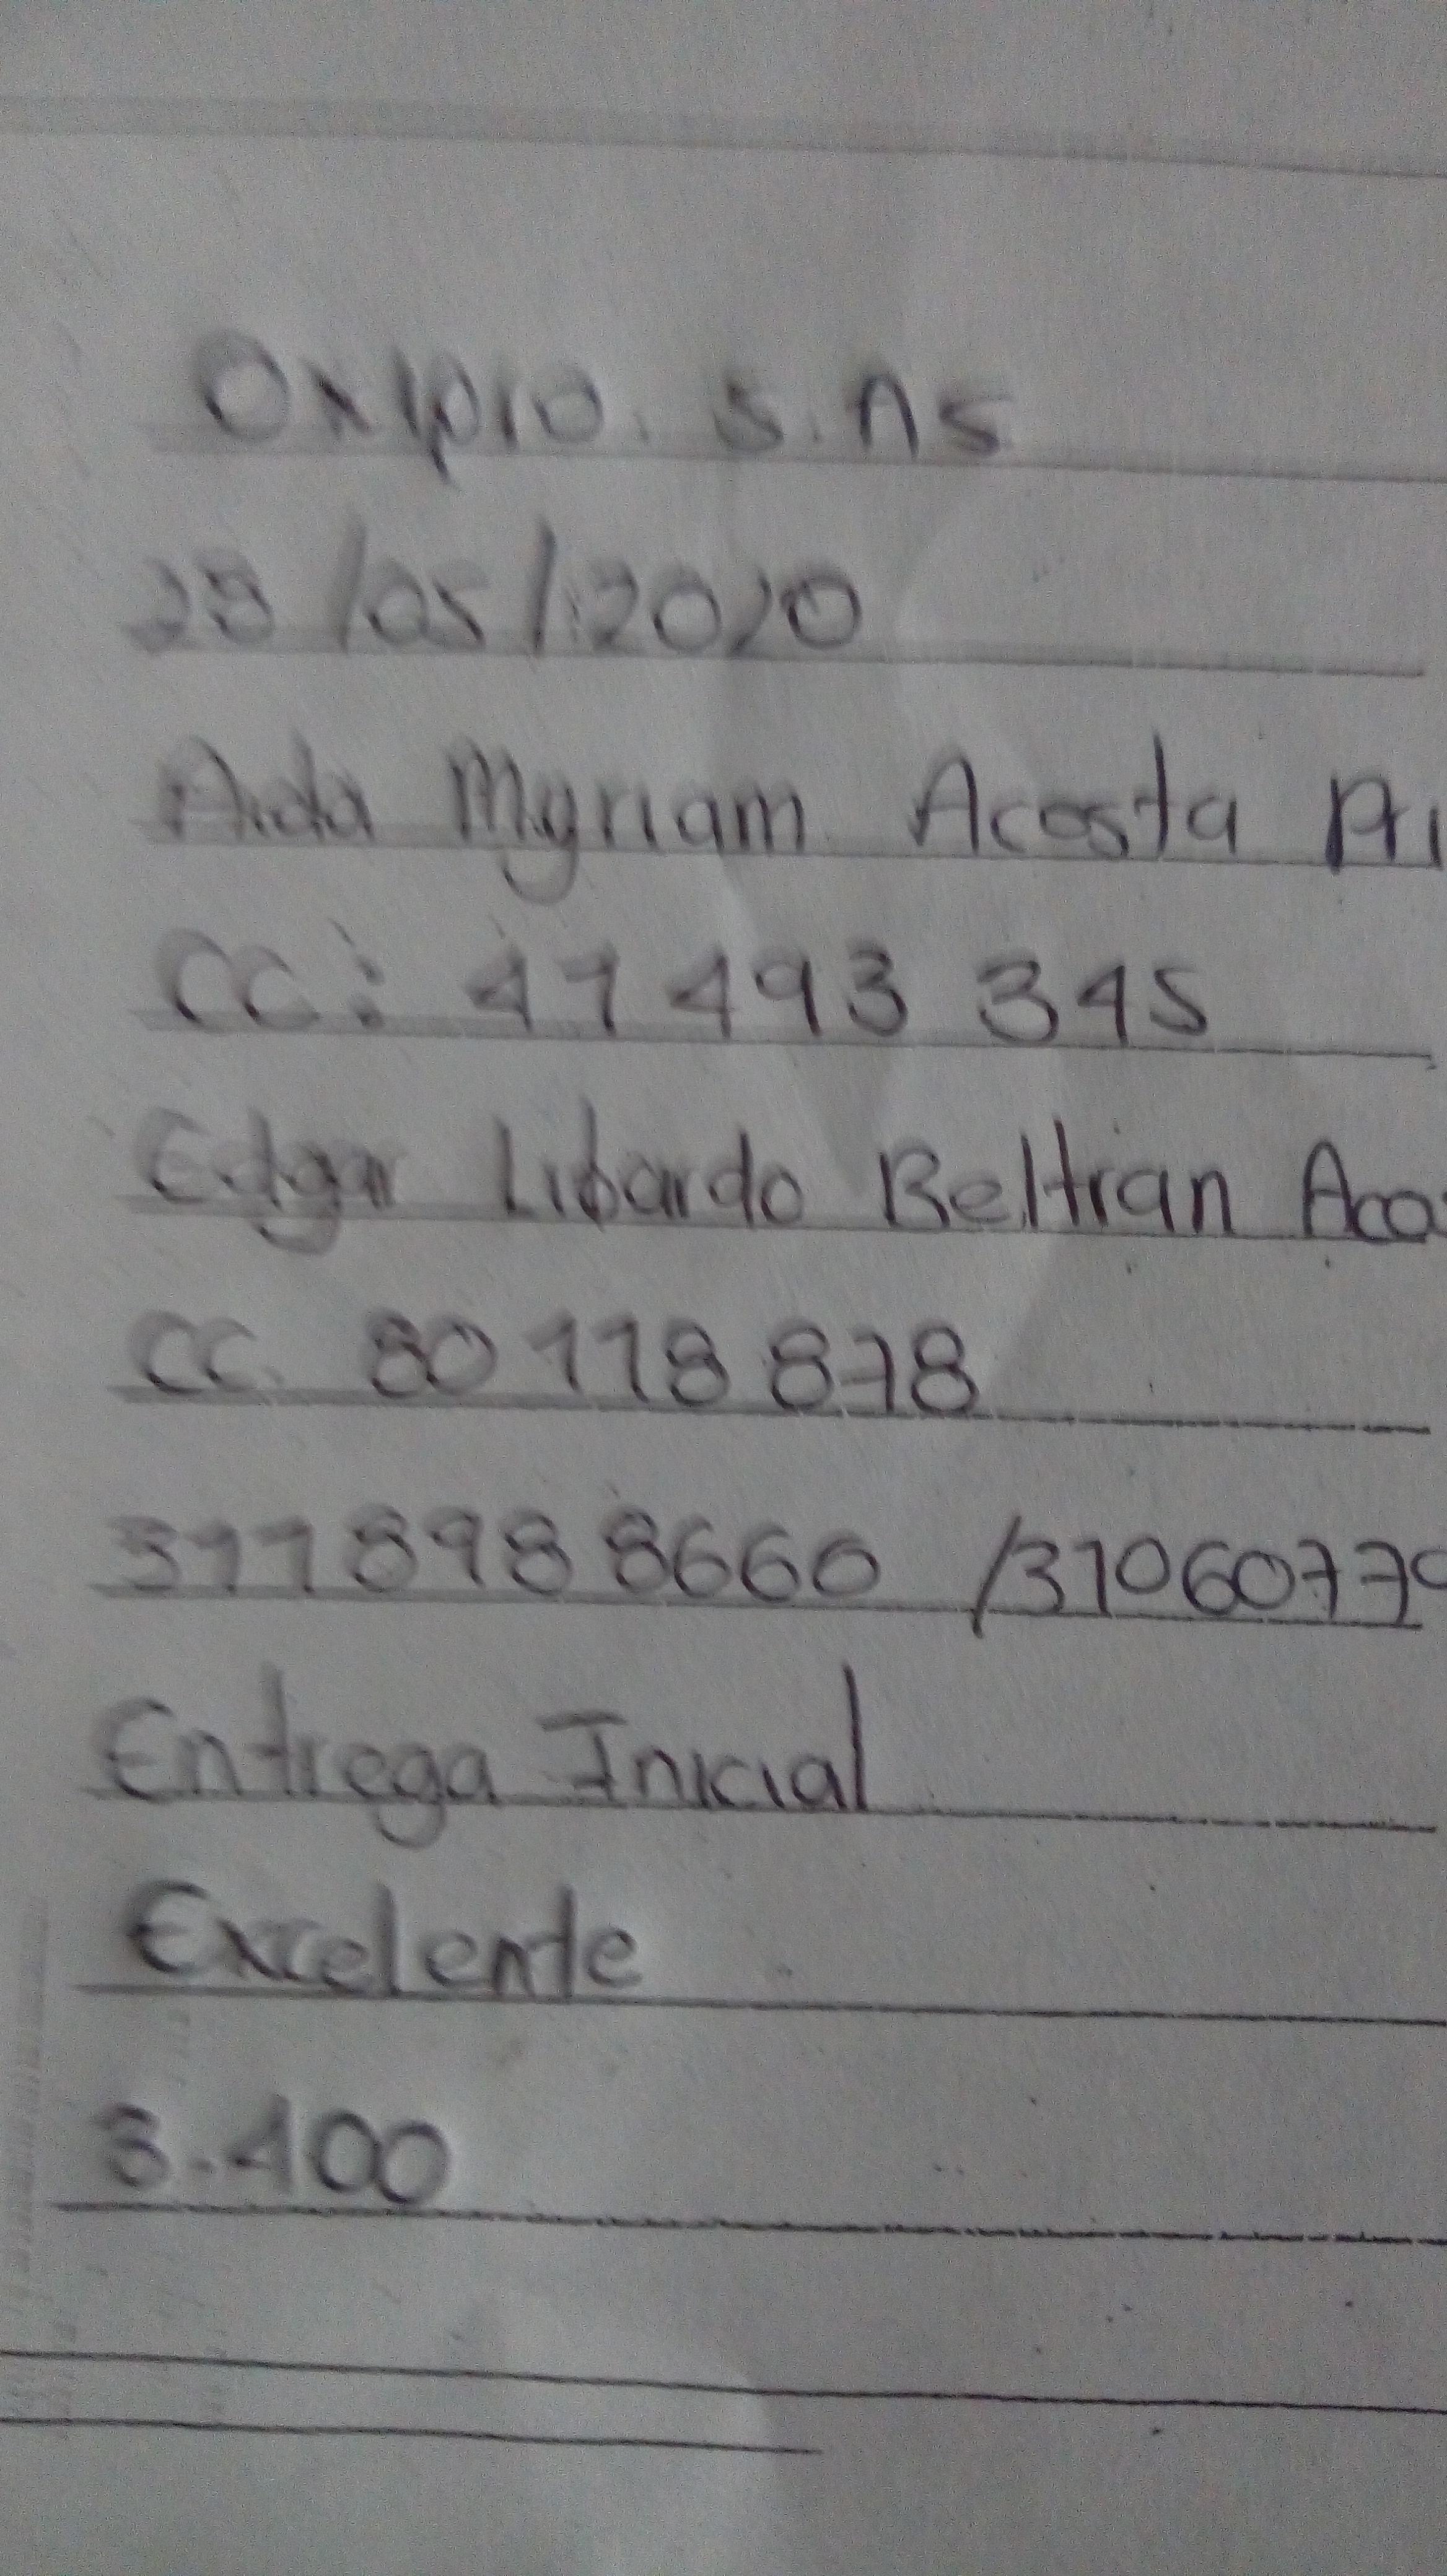 Oxipro. s.ns
28/05/2020
Aida Myriam Acosta
CC: 41 493 345
Edgar Libardo Beltran Aco
CC. 80 118 878
311898 8660 /31060779
Entrega Inicial
Excelente
3.400